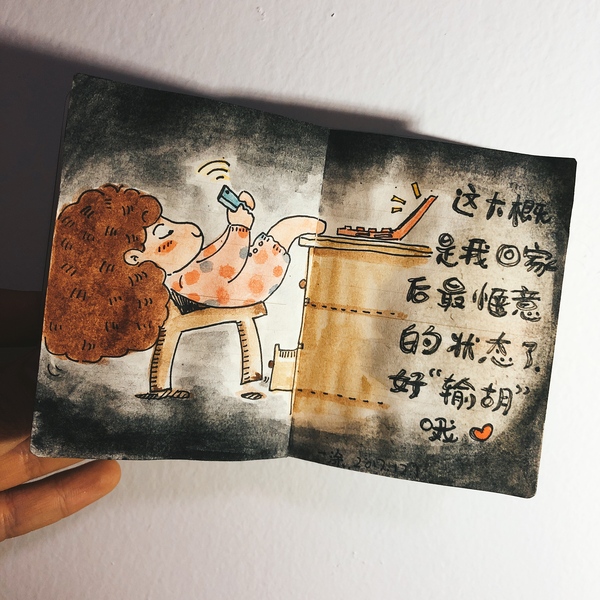 这大概
是我回家
后最惬意
的状态了.
好“输胡”
哦